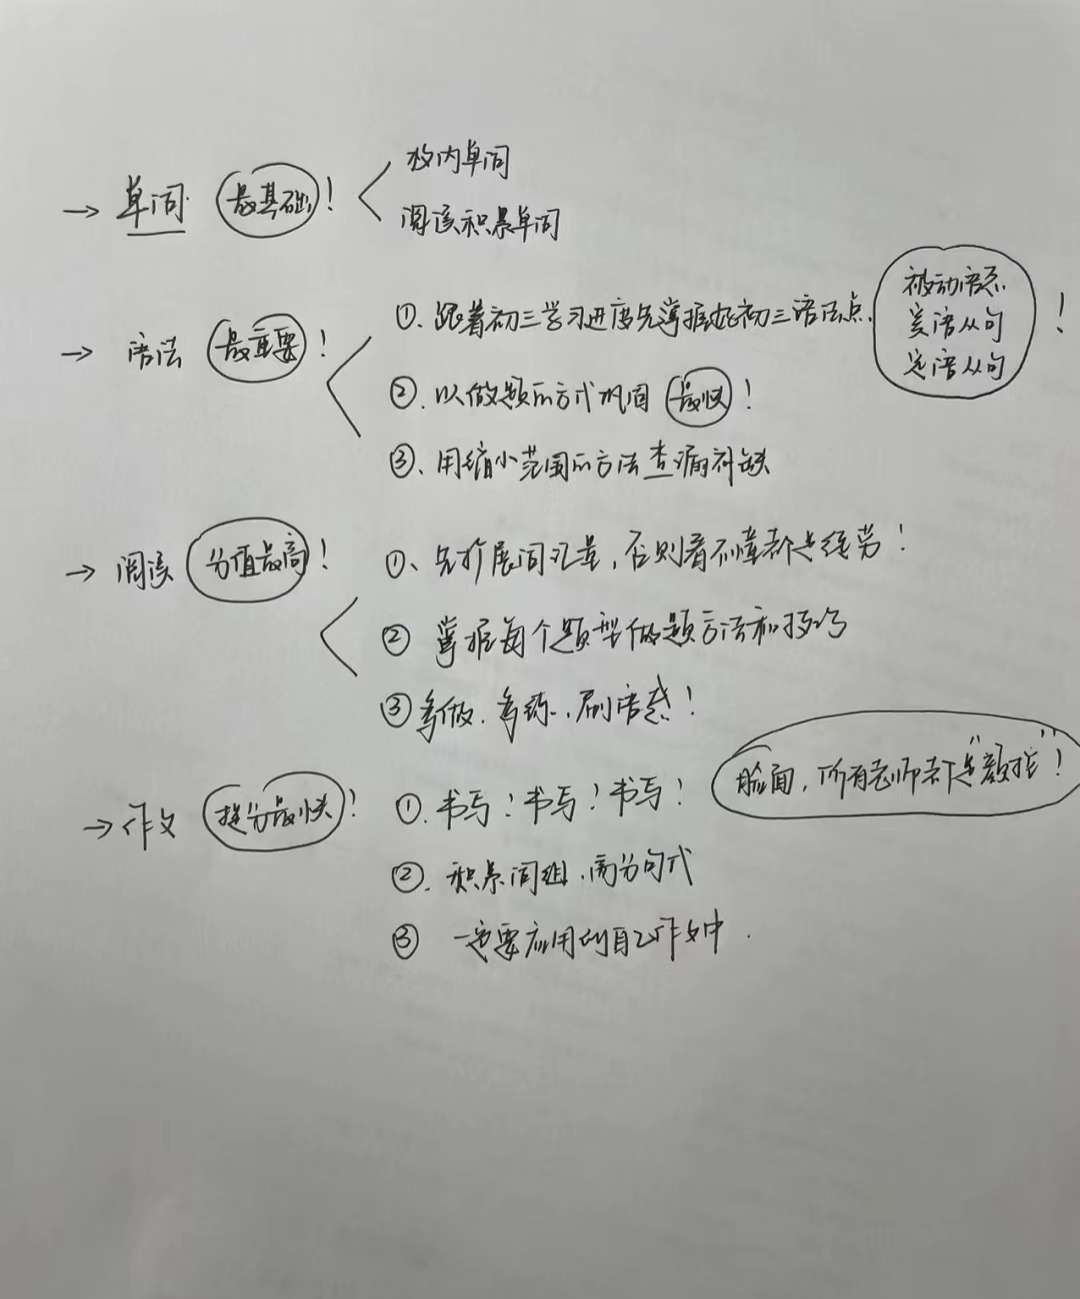 → 单词 最基础！
校内单词
阅读积累单词
→ 语法 最重要！
①、跟着初三学习进度先掌握好初三语法点.
被动语态
宾语从句
定语从句
！
②、以做题的方式巩固 最快！
③、用缩小范围的方法查漏补缺
→ 阅读 分值最高！
①、先扩展词汇量，否则看不懂都是徒劳！
② 掌握每个题型做题方法和技巧
③ 多做、多练、刷语感！
→ 作文 提分最快！
①、书写！书写！书写！
脸面，所有老师都是"颜控"！
②、积累词组、高分句式
③ 一定要应用到自己作文中.